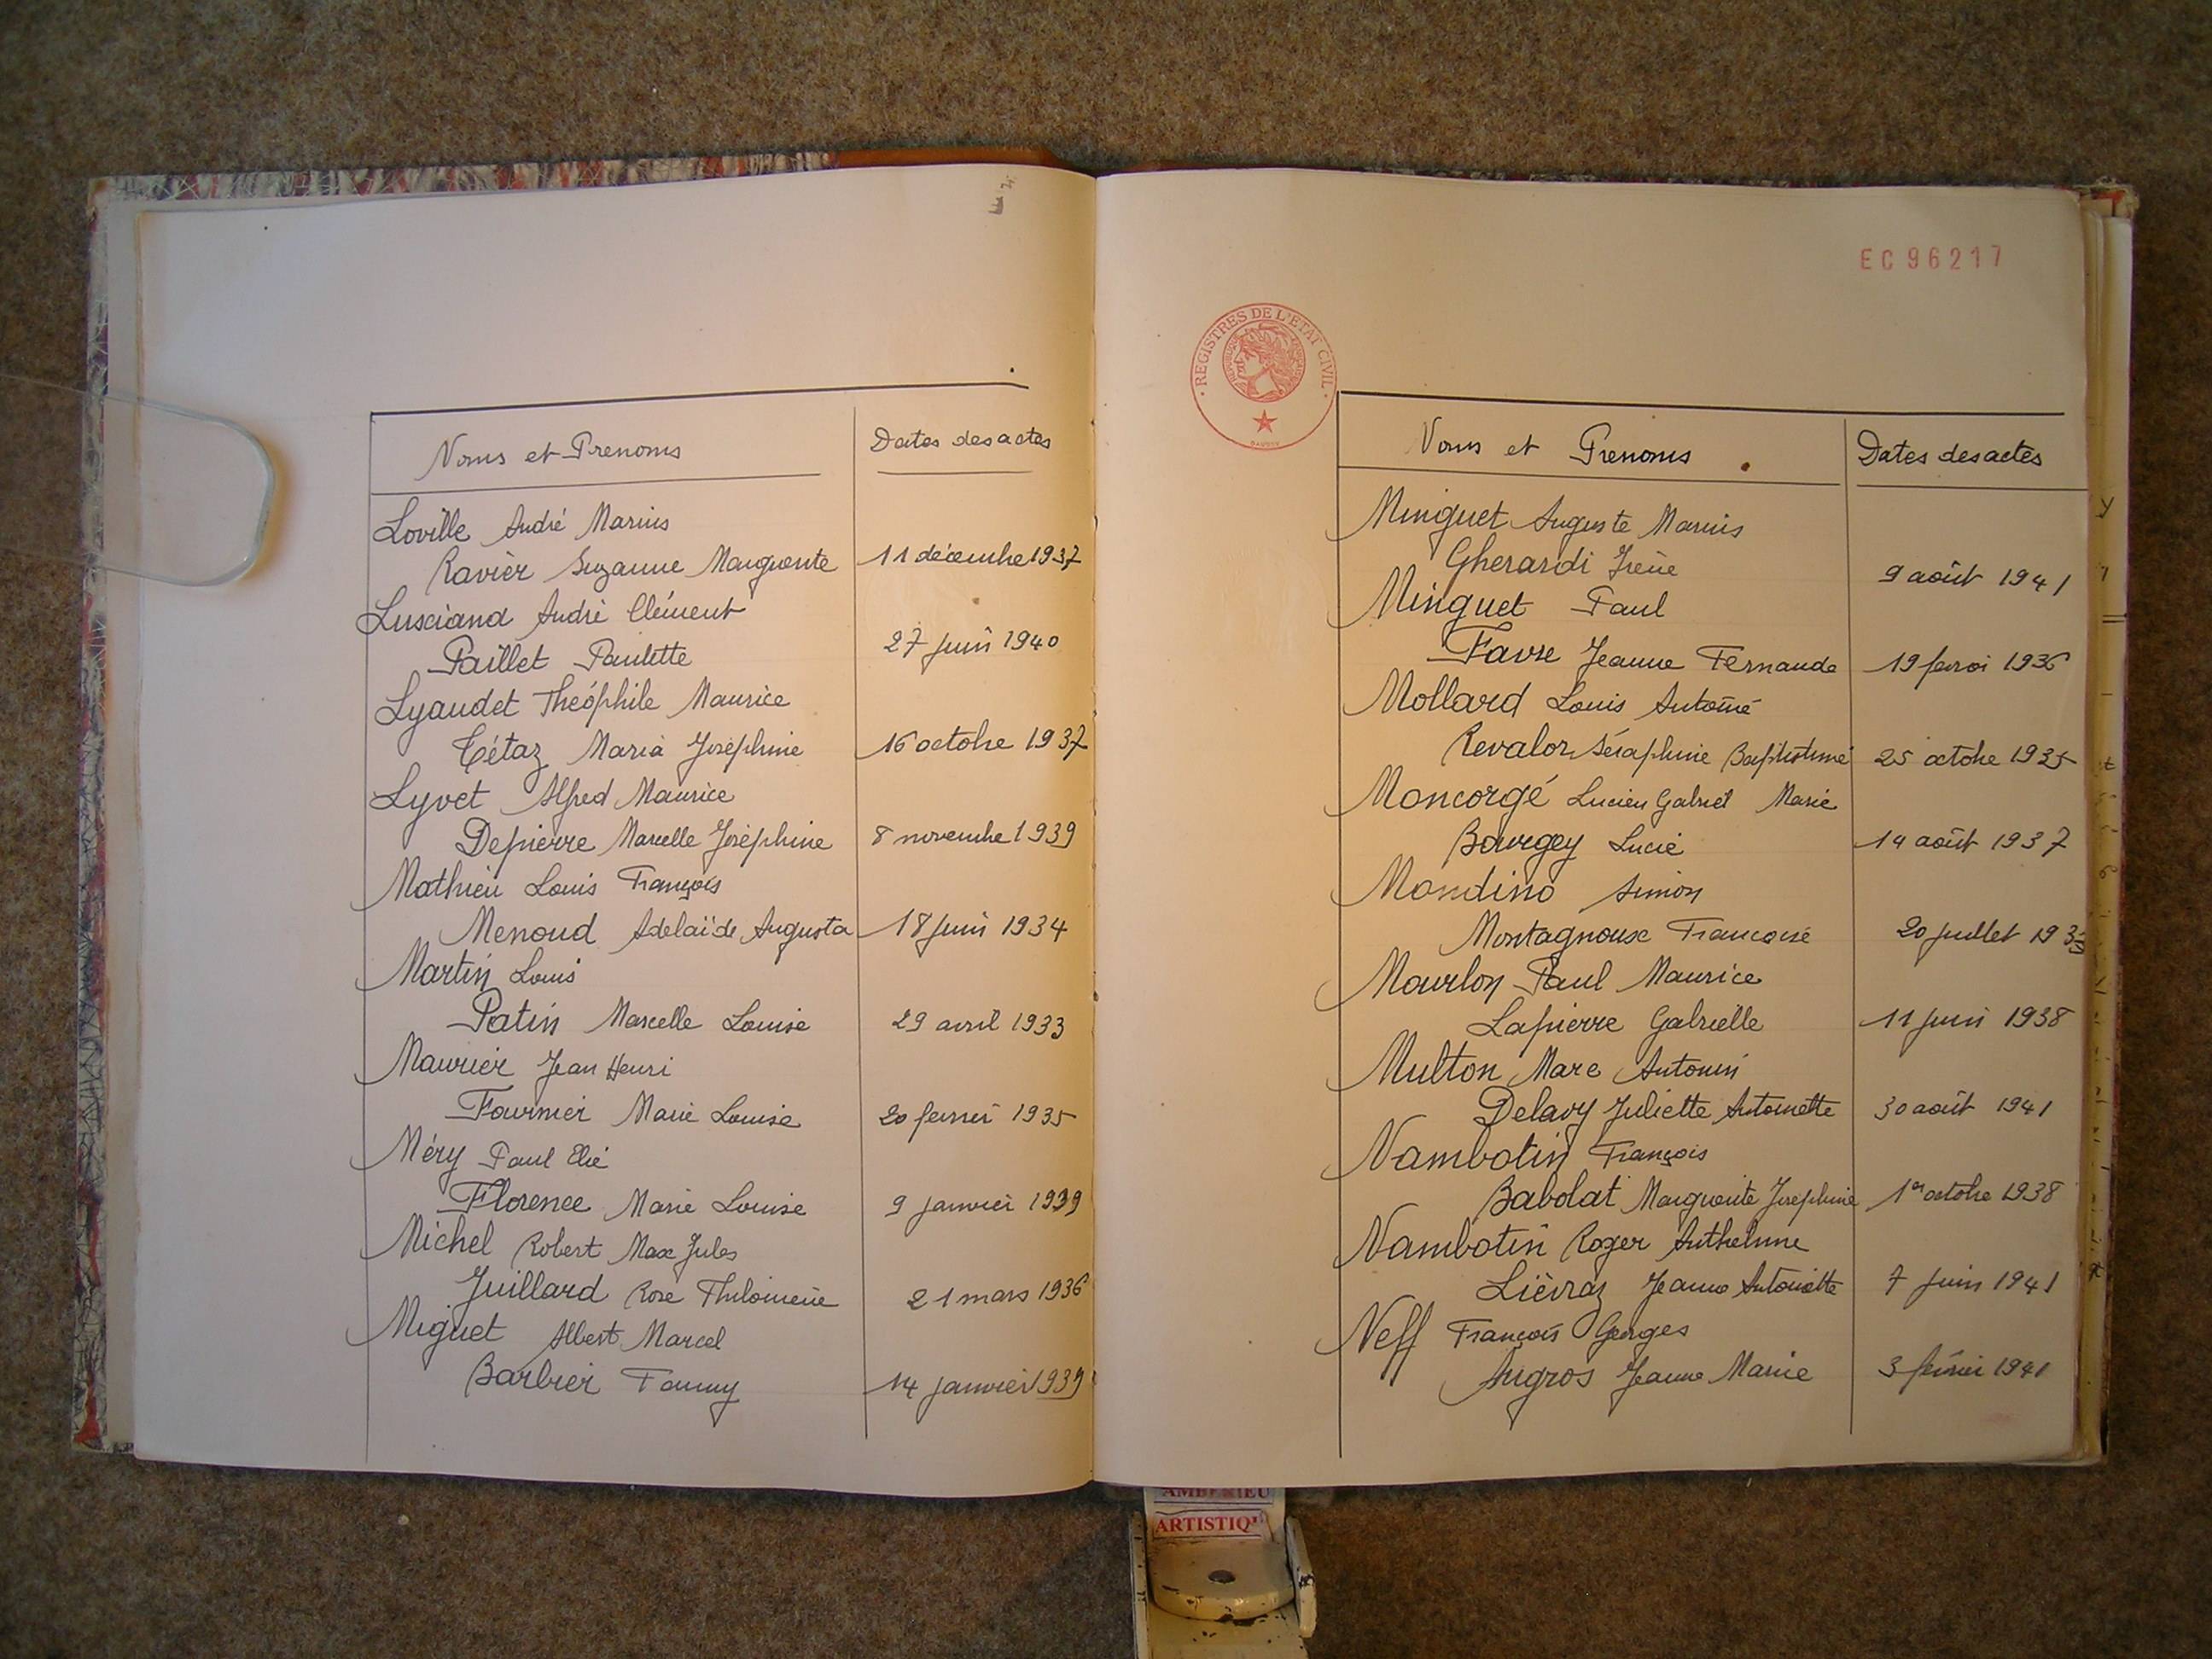 Noms et Prenoms Dates des actes
Loville André Marius
Ravier Suzanne Marguerite 11 décembre 1937
Lusciand André Clément
Paillet Paulette 27 juin 1940
Lyaudet Théophile Maurice
Tétaz Maria Joséphine 16 octobre 1937
Lyvet Alfred Maurice
Depierre Marcelle Joséphine 8 novembre 1939
Mathieu Louis François
Menoud Adelaïde Augusta 18 juin 1934
Martin Louis
Patin Marcelle Louise 29 avril 1933
Maurier Jean Henri
Fournier Marie Louise 20 fevrier 1935
Méry Paul Elie
Florence Marie Louise 9 janvier 1939
Michel Robert Max Jules
Juillard Rose Philomène 21 mars 1936
Miguet Albert Marcel
Barbier Fanny 14 janvier 1939
EC 96217
REGISTRES DE L'ETAT CIVIL
Noms et Prenoms Dates des actes
Minguet Auguste Marius
Gherardi Irène 9 août 1941
Minguet Paul
Favre Jeanne Fernande 19 fevrier 1936
Mollard Louis Antoine
Revalor Séraphine Baptistine 25 octobre 1935
Moncorgé Lucien Gabriel Marie
Bourgey Lucie 14 août 1937
Mondino Simon
Montagnoux Francoise 20 juillet 193
Mourlon Paul Maurice
Lapierre Gabrielle 11 juin 1938
Multon Marc Antonin
Delavy Juliette Antoinette 30 août 1941
Nambotin François
Babolat Marguerite Josephine 1er octobre 1938
Nambotin Roger Anthelme
Lièvraz Jeanne Antoinette 7 juin 1941
Neff François Georges
Augros Jeanne Marie 3 février 1941
AMBERIEU
ARTISTIQU